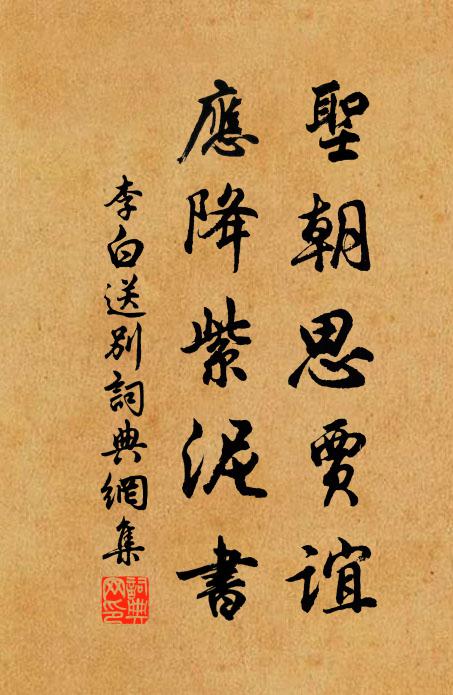 聖朝思賈誼
應降紫泥書
李白送别詞典網集
詞典网印